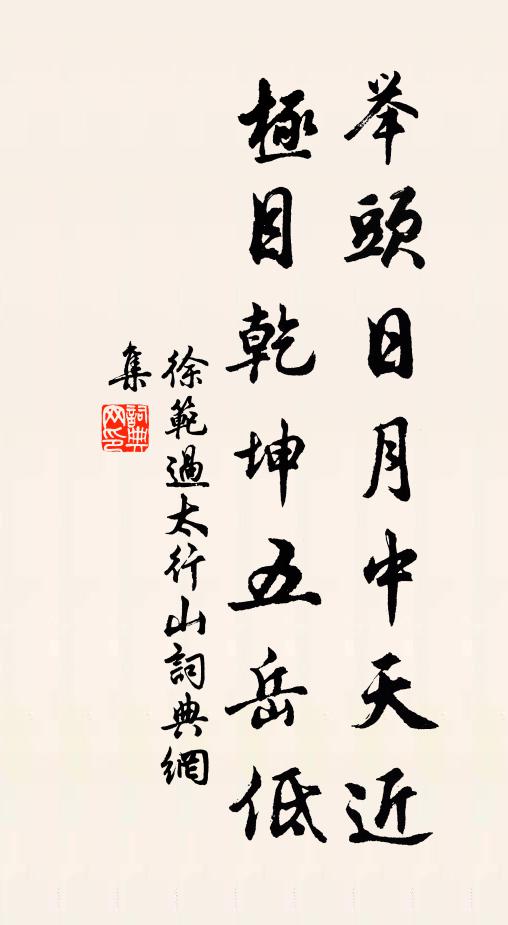 举頭日月中天近
極目乾坤五岳低
徐範過太行山詞典網
集
詞典網印